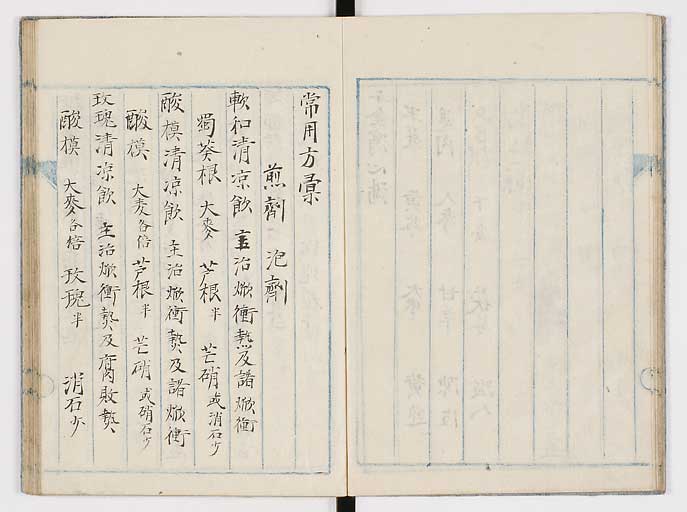 常用方彙
煎劑 泡劑
軟和清凉飲 主治焮衝熱及諸焮衝
蜀葵根 大麥 芦根半 芒硝或消石少
酸模清凉飲 主治焮衝熱及諸焮衝
酸模 大麦各倍 芦根半 芒硝或硝石少
玫瑰清凉飲 主治焮衝熱及腐敗熱
酸模 大麥各倍 玫瑰半 消石少